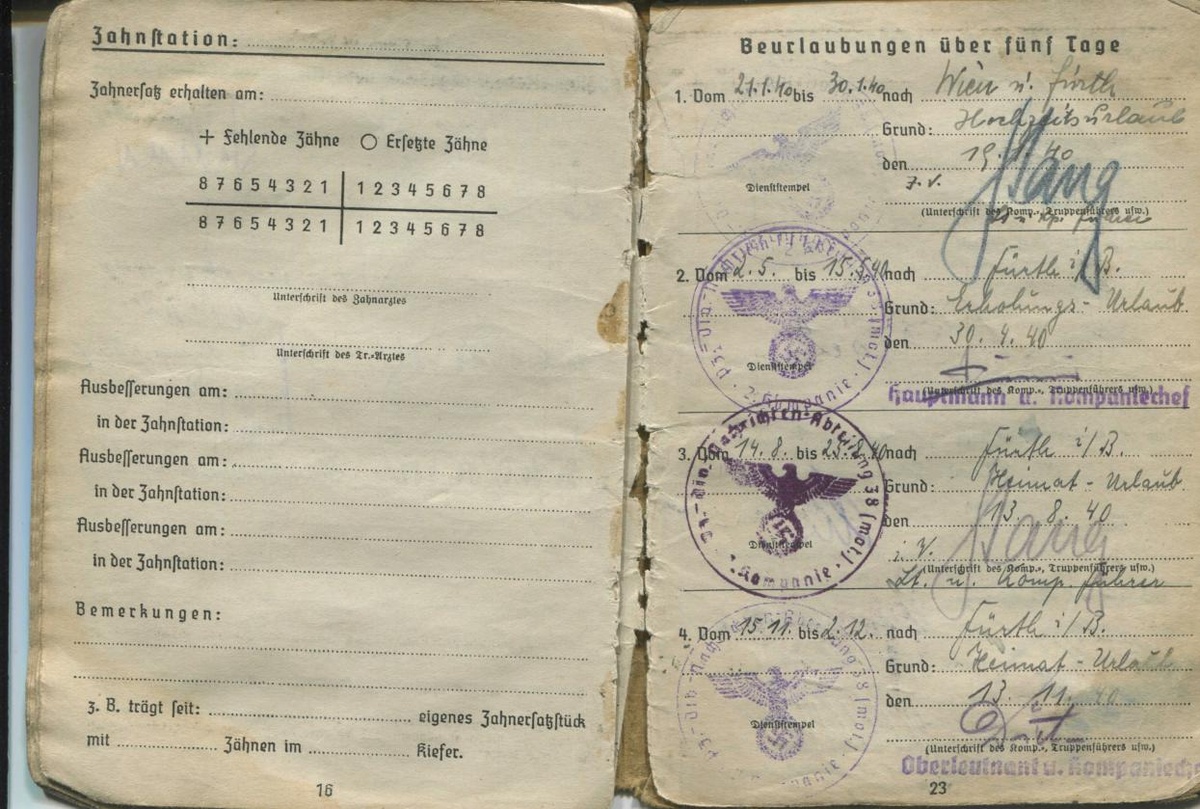 Zahnstation:
Zahnersatz erhalten am:
+ Fehlende Zähne ○ Ersetzte Zähne
8 7 6 5 4 3 2 1 | 1 2 3 4 5 6 7 8
8 7 6 5 4 3 2 1 | 1 2 3 4 5 6 7 8
Unterschrift des Zahnarztes
Unterschrift des Tr.-Arztes
Ausbesserungen am:
in der Zahnstation:
Ausbesserungen am:
in der Zahnstation:
Ausbesserungen am:
in der Zahnstation:
Bemerkungen:
z. B. trägt seit: eigenes Zahnersatzstück
mit Zähnen im Kiefer.
16
Beurlaubungen über fünf Tage
1. Vom 21.1.40 bis 30.1.40 nach Wien u. Fürth
Grund: Hochzeitsurlaub
den 19.1.40
Dienststempel
(Unterschrift des Komp.-, Truppenführers usw.)
2. Vom 2.5. bis 15.5.40 nach Fürth i/B.
Grund: Erholungs-Urlaub
den 30.4.40
Dienststempel
(Unterschrift des Komp.-, Truppenführers usw.)
Hauptmann u. Kompaniechef
Pz.-Div.-Nachrichten-Abteilung 38 (mot.)
2. Kompanie
3. Vom 14.8. bis 40 nach Fürth i/B.
Grund: Heimat-Urlaub
den 13.8.40
i. V.
Dienststempel
(Unterschrift des Komp.-, Truppenführers usw.)
Lt. u. Komp. führer
Pz.-Div.-Nachrichten-Abteilung 38 (mot.)
Kompanie
4. Vom 15.11. bis 2.12. nach Fürth i/B.
Grund: Heimat-Urlaub
den 13.11.40
Dienststempel
(Unterschrift des Komp.-, Truppenführers usw.)
Oberleutnant u. Kompaniechef
Pz.-Div.-Nachrichten-Abteilung 38 (mot.)
Kompanie
23